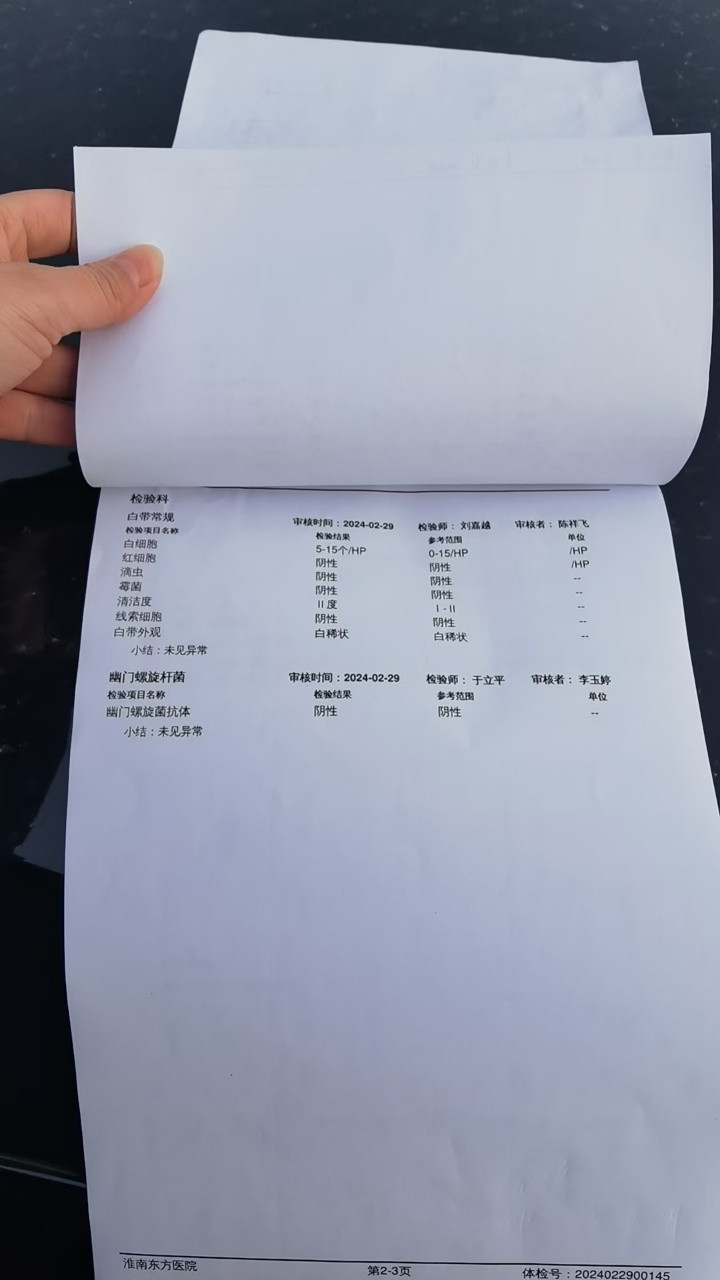 检验科
白带常规 审核时间：2024-02-29 检验师：刘嘉越 审核者：陈祥飞
检验项目名称 检验结果 参考范围 单位
白细胞 5-15个/HP 0-15/HP /HP
红细胞 阴性 阴性 /HP
滴虫 阴性 阴性 --
霉菌 阴性 阴性 --
清洁度 II度 I-II --
线索细胞 阴性 阴性 --
白带外观 白稀状 白稀状 --
小结：未见异常
幽门螺旋杆菌 审核时间：2024-02-29 检验师：于立平 审核者：李玉婷
检验项目名称 检验结果 参考范围 单位
幽门螺旋菌抗体 阴性 阴性 --
小结：未见异常
淮南东方医院 第2-3页 体检号：2024022900145